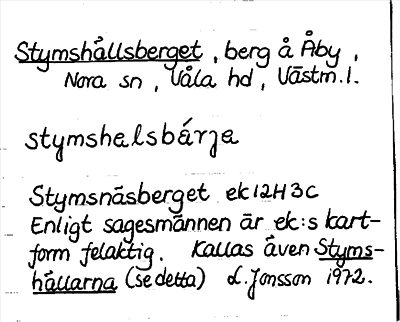 Stymshållsberget, berg å Åby,
Nora sn, Våla hd, Västm.l.
stymshalsbárja
Stymsnäsberget ek 12H 3C
Enligt sagesmännen är ek:s kart-
form felaktig. Kallas även Styms-
hållarna (se detta) L. Jonsson 1972.